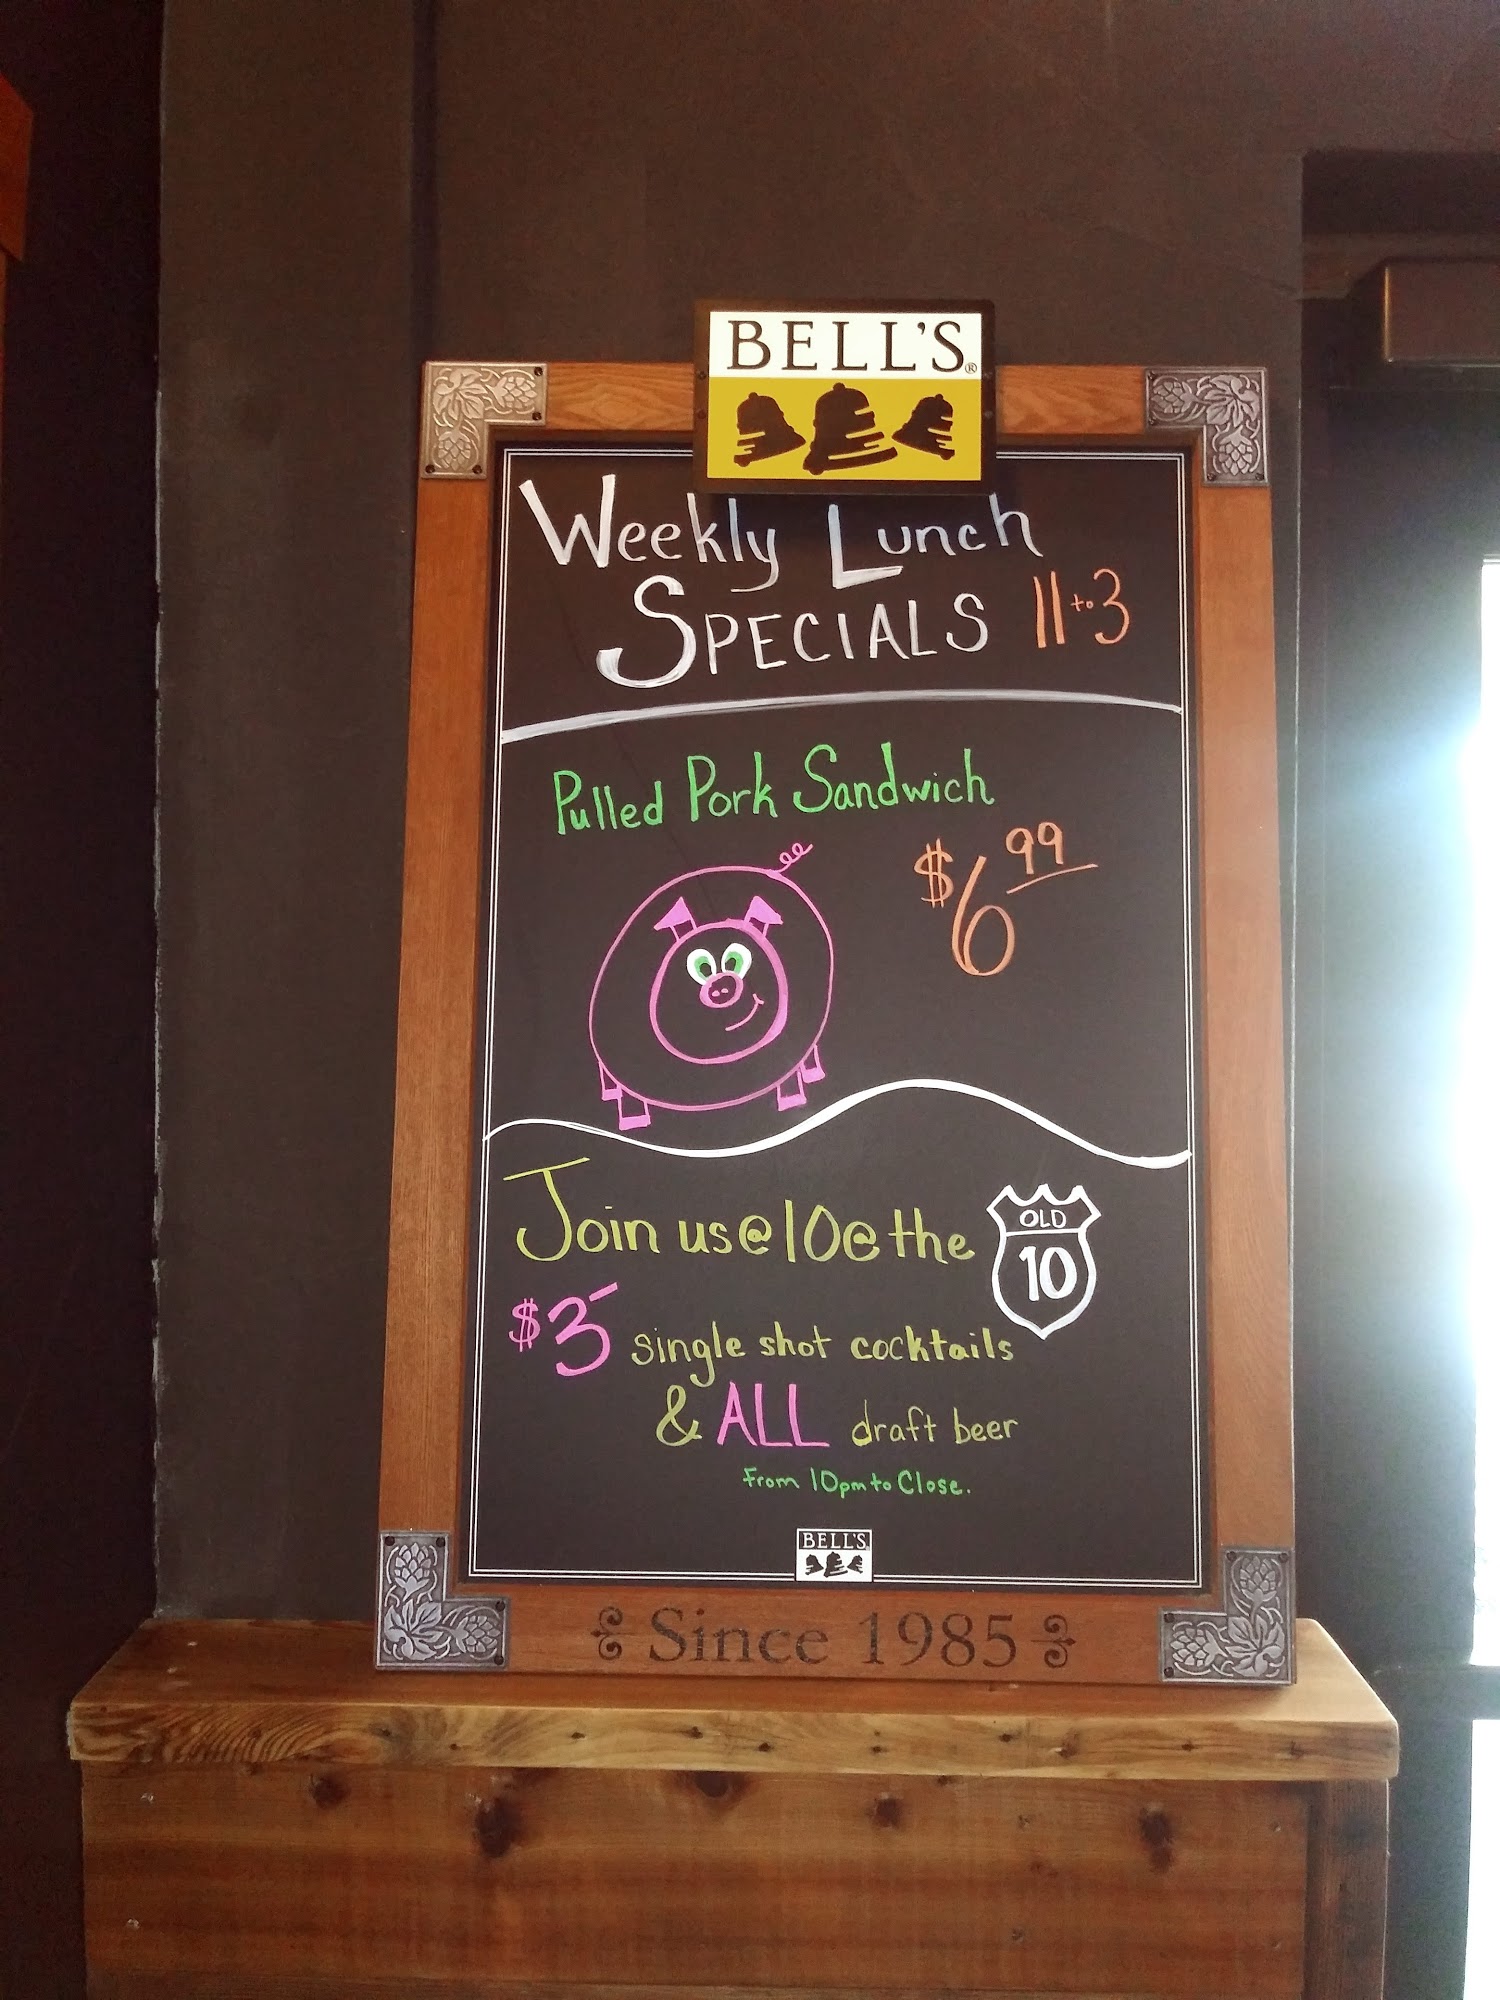 BELL'S®
Weekly Lunch
SPECIALS 11 to 3
Pulled Pork Sandwich
$6 99
Join us @ 10 @ the
OLD
10
$3 single shot cocktails
& ALL draft beer
From 10pm to Close.
BELL'S
Since 1985